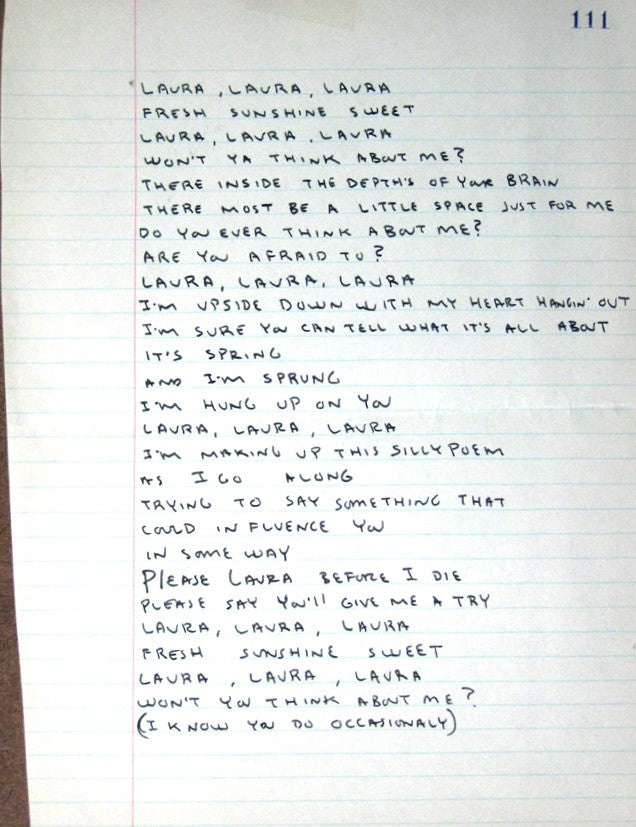 111
LAURA, LAURA, LAURA
FRESH SUNSHINE SWEET
LAURA, LAURA, LAURA
WON'T YA THINK ABOUT ME?
THERE INSIDE THE DEPTH'S OF YOUR BRAIN
THERE MOST BE A LITTLE SPACE JUST FOR ME
DO YOU EVER THINK ABOUT ME?
ARE YOU AFRAID TO?
LAURA, LAURA, LAURA
I'M UPSIDE DOWN WITH MY HEART HANGIN' OUT
I'M SURE YOU CAN TELL WHAT IT'S ALL ABOUT
IT'S SPRING
AND I'M SPRUNG
I'M HUNG UP ON YOU
LAURA, LAURA, LAURA
I'M MAKING UP THIS SILLY POEM
AS I GO ALONG
TRYING TO SAY SOMETHING THAT
COULD INFLUENCE YOU
IN SOME WAY
PLEASE LAURA BEFORE I DIE
PLEASE SAY YOU'll GIVE ME A TRY
LAURA, LAURA, LAURA
FRESH SUNSHINE SWEET
LAURA, LAURA, LAURA
WON'T YOU THINK ABOUT ME?
(I KNOW YOU DO OCCASIONALY)